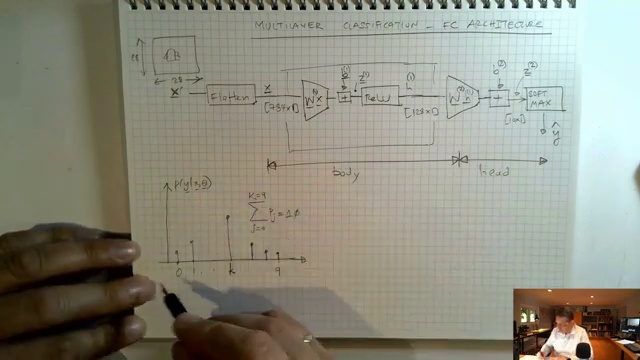 MULTILAYER CLASSIFICATION - FC ARCHITECTURE
28
28
x'
Flatten
x
[784x1]
W(1) x
b(1)
+
z(1)
ReLU
h(1)
[128x1]
W(2) h(1)
b(2)
+
z(2)
[10x1]
SOFT MAX
ŷ
body
head
P(y|x,θ)
K=9
Σ Pj = 1.0
j=0
0 1 . . k 9